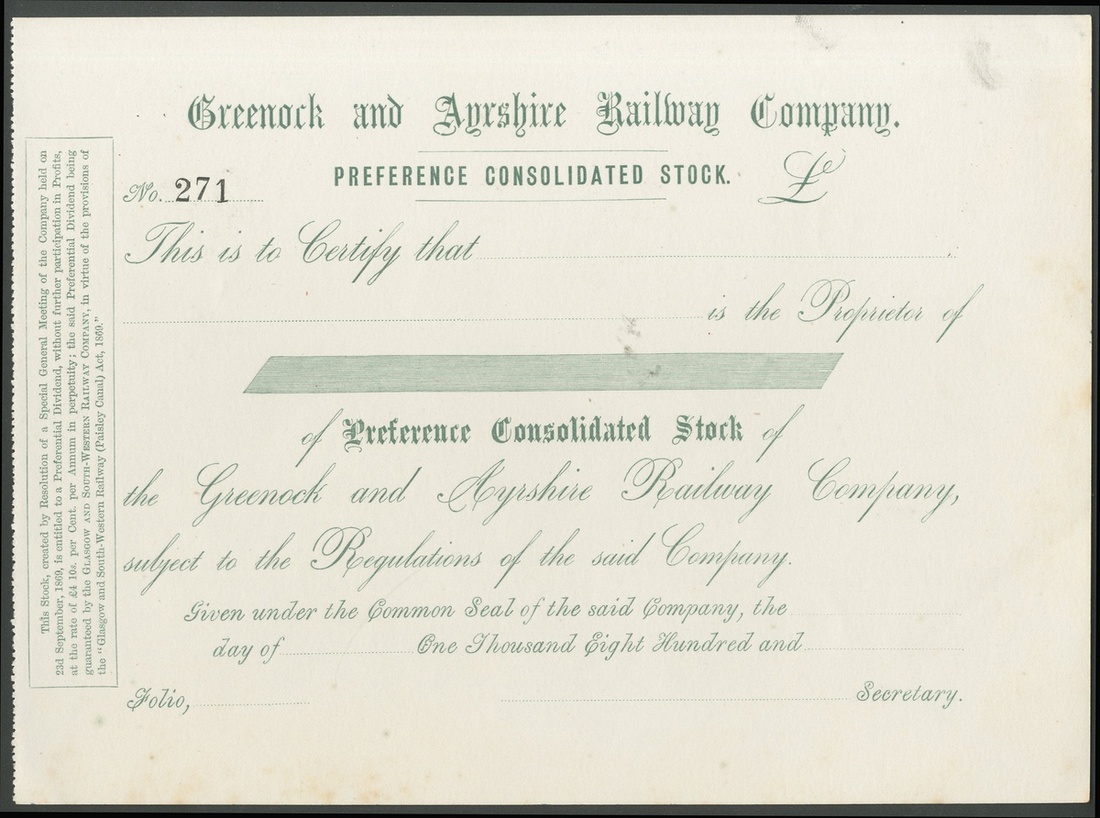 Greenock and Ayrshire Railway Company.
PREFERENCE CONSOLIDATED STOCK.
£
No. 271
This is to Certify that
is the Proprietor of
of Preference Consolidated Stock of
the Greenock and Ayrshire Railway Company,
subject to the Regulations of the said Company.
Given under the Common Seal of the said Company, the
day of One Thousand Eight Hundred and
Folio, Secretary.
This Stock, created by Resolution of a Special General Meeting of the Company held on
23d September, 1869, is entitled to a Preferential Dividend, without further participation in Profits,
at the rate of £4 10s. per Cent. per Annum in perpetuity; the said Preferential Dividend being
guaranteed by the GLASGOW AND SOUTH-WESTERN RAILWAY COMPANY, in virtue of the provisions of
the "Glasgow and South-Western Railway (Paisley Canal) Act, 1869."